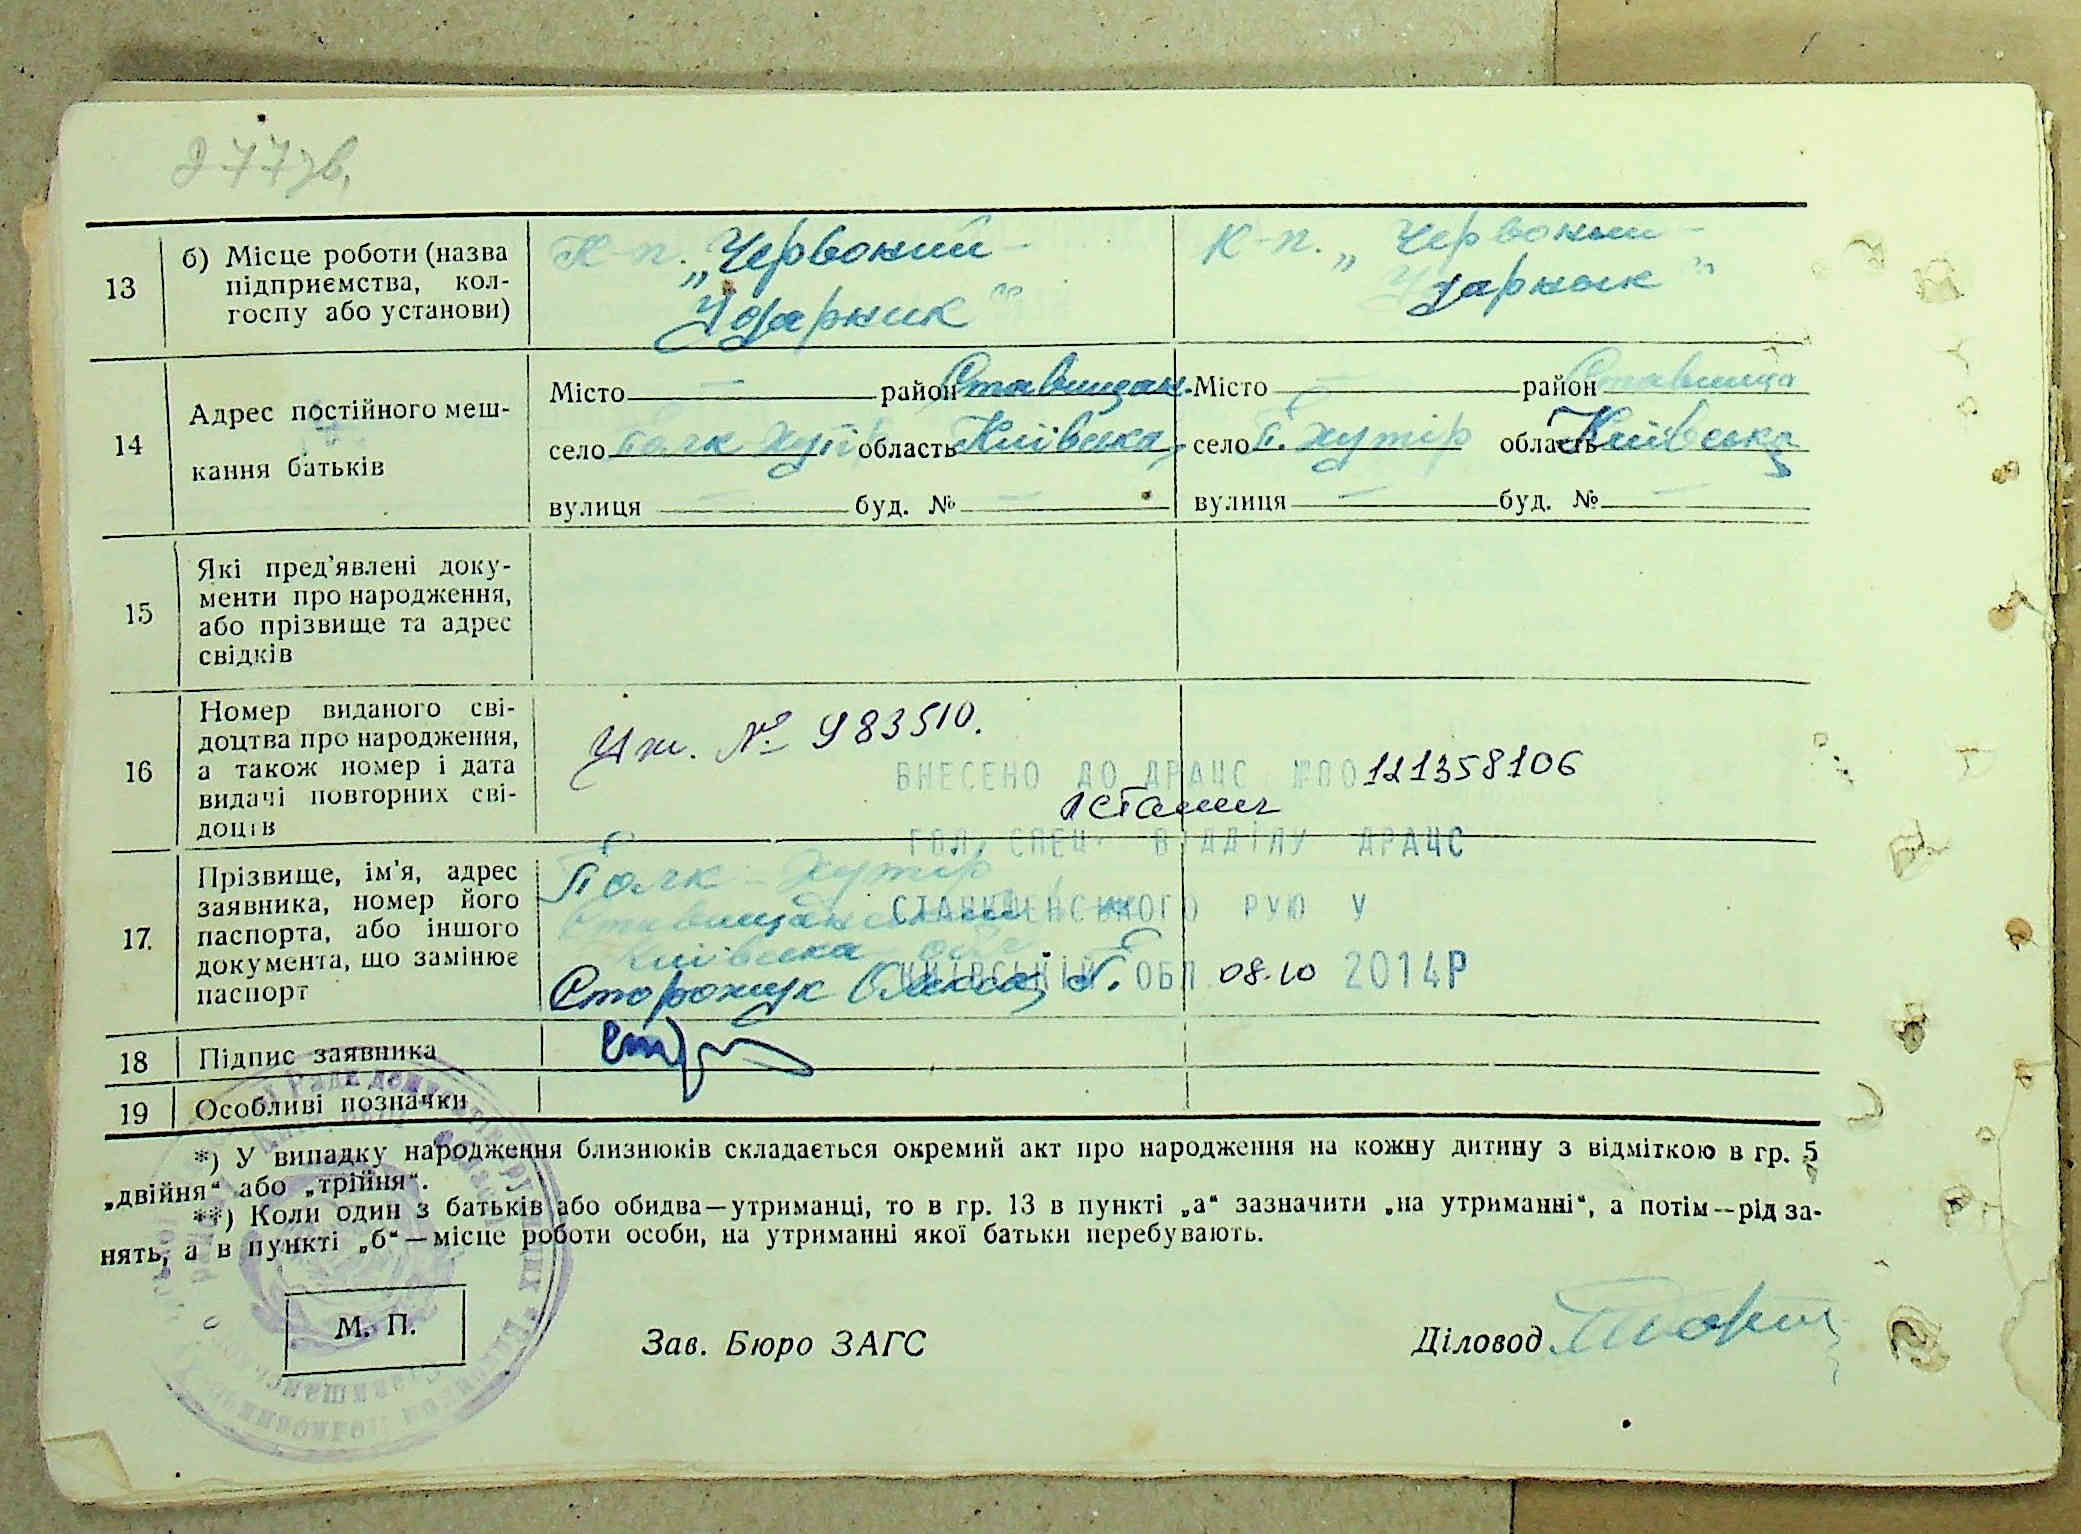 277зв.
13 б) Місце роботи (назва
підприємства, кол-
госпу або установи)
К-п. „Червоний-
Ударник"
К-п. „Червоний-
Ударник"
14 Адрес постійного меш-
кання батьків
Місто — район Ставищан.
село Полк хутір область Київська
вулиця — буд. № —
Місто — район Ставища
село П. хутір область Київська
вулиця — буд. № —
15 Які пред'явлені доку-
менти про народження,
або прізвище та адрес
свідків
16 Номер виданого сві-
доцтва про народження,
а також номер і дата
видачі повторних сві-
доців
№ 983510.
ВНЕСЕНО ДО ДРАЦС №00121358106
ГОЛ. СПЕЦ. ВІДДІЛУ ДРАЦС
СТАВИЩЕНСЬКОГО РУЮ У
КИЇВСЬКІЙ ОБЛ. 08.10 2014Р
17. Прізвище, ім'я, адрес
заявника, номер його
паспорта, або іншого
документа, що замінює
паспорт
Полк-хутір
Київська обл
Сторожук П.
18 Підпис заявника
19 Особливі позначки
*) У випадку народження близнюків складається окремий акт про народження на кожну дитину з відміткою в гр. 5
„двійня“ або „трійня“.
**) Коли один з батьків або обидва—утриманці, то в гр. 13 в пункті „а“ зазначити „на утриманні“, а потім—рід за-
нять, а в пункті „б“—місце роботи особи, на утриманні якої батьки перебувають.
М. П.
Зав. Бюро ЗАГС
Діловод